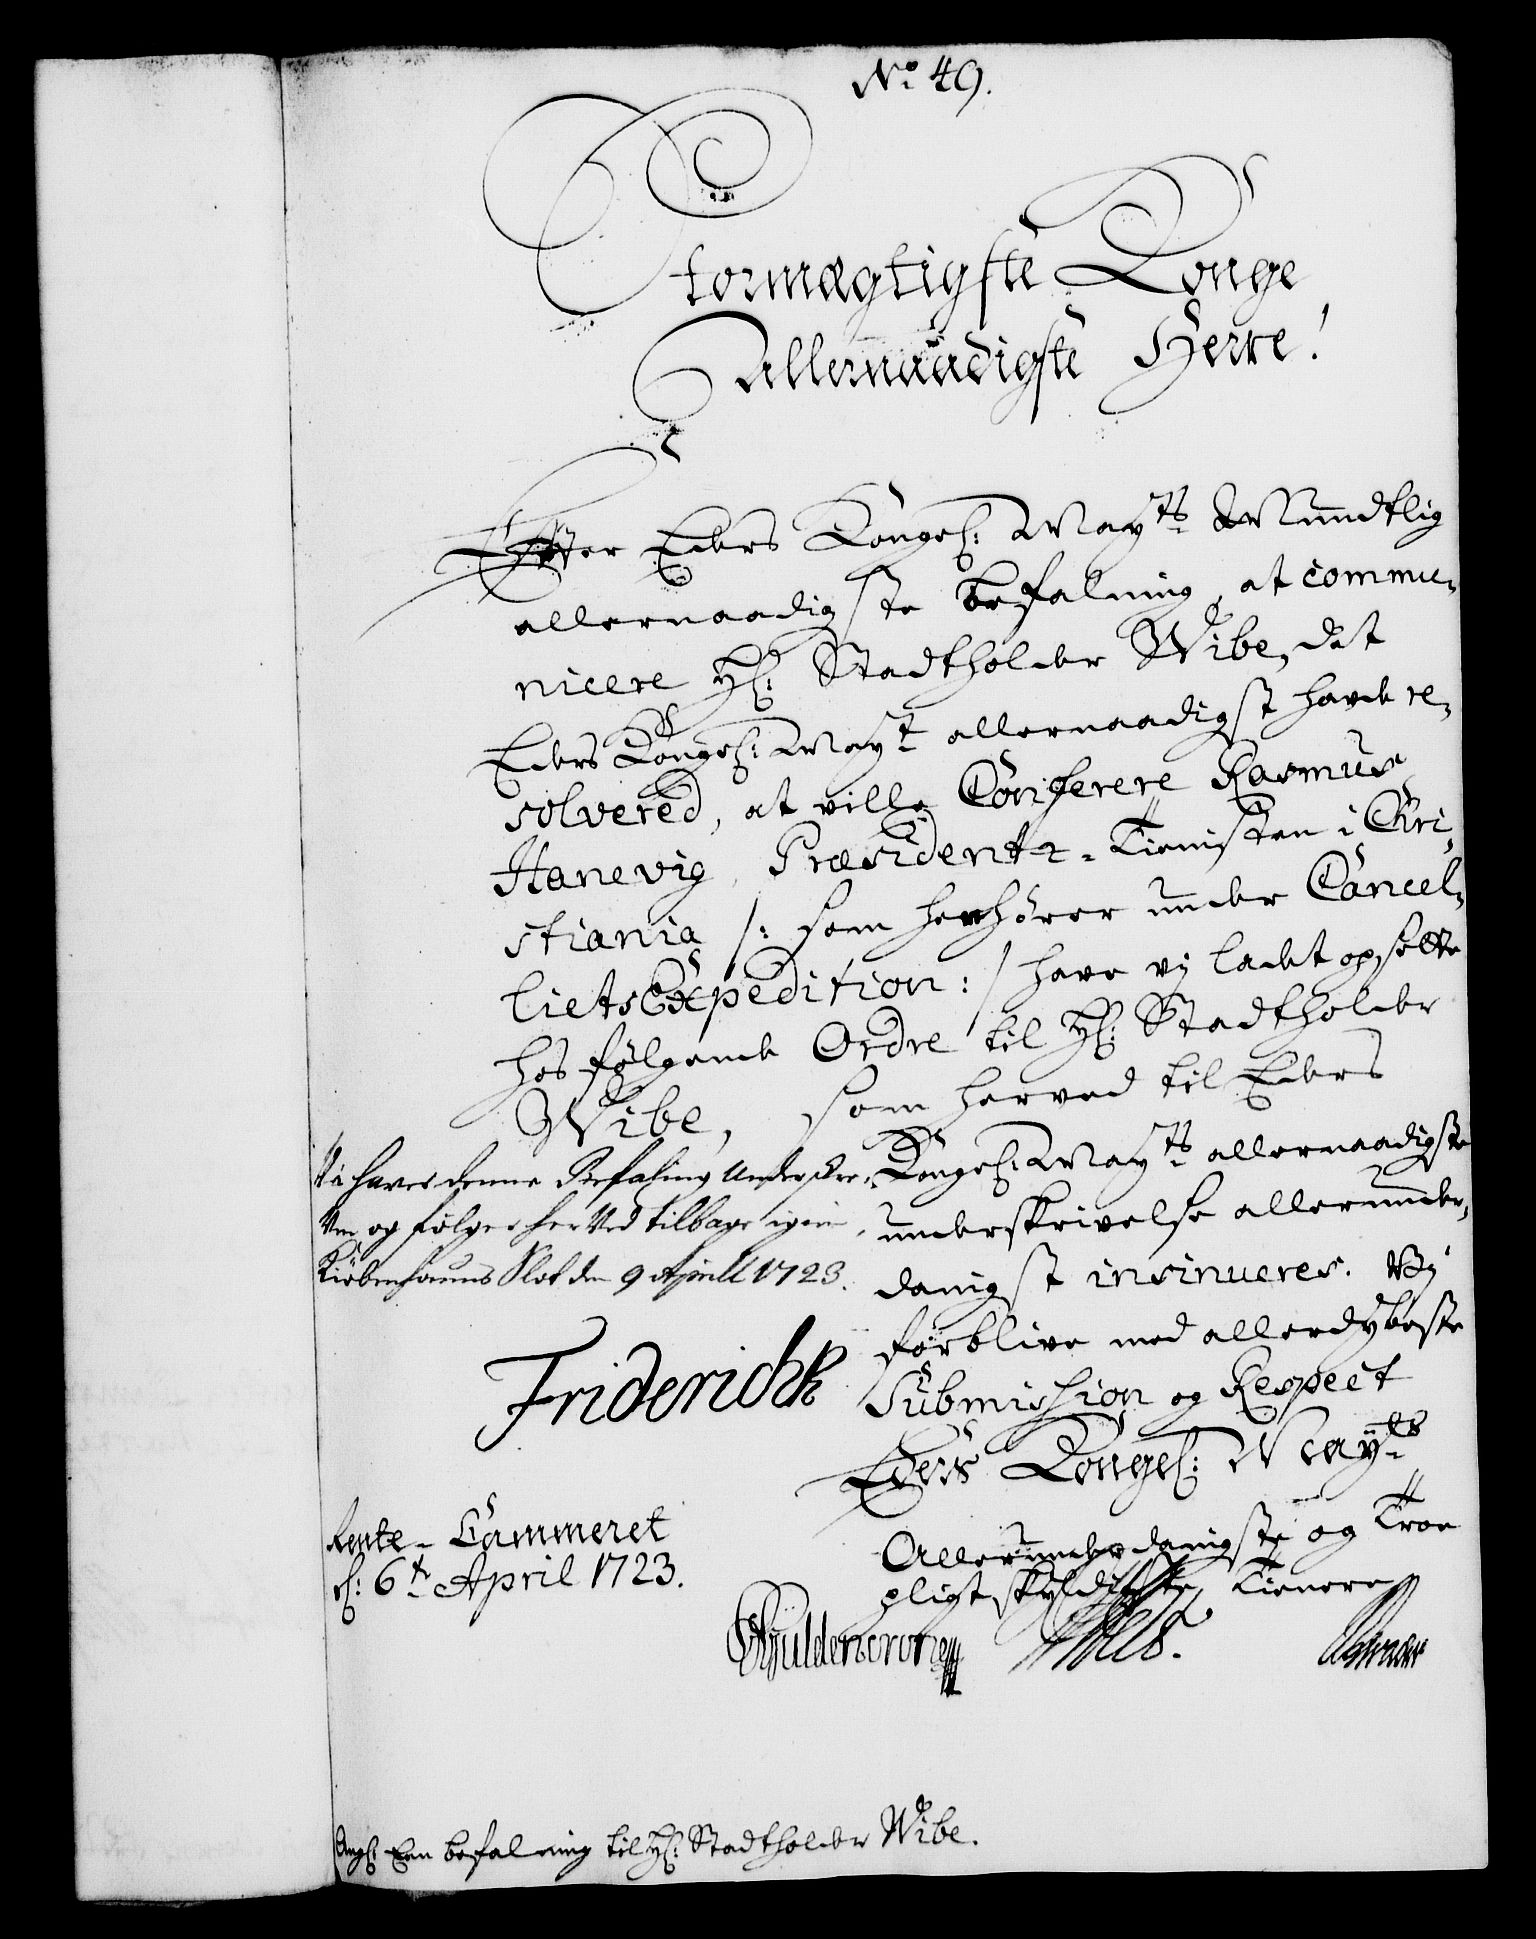 No. 49.
Stormægtigste Konge
Allernaadigste Herre!
Efter Eders Kongel: Mayts Mundtlig
allernaadigste befalning, at commu-
nicere H: Stadtholder Wibe, det
Eders Kongel: Mayt allernaadigst hafde re-
solvered, at ville Conferere Rasmus
Hanevig, Præsidents-Tienisten i Chri-
stiania /: som henhører under Cancel-
liets Expedition: / have vij ladet opsette
hosfølgende Ordre til H: Stadtholder
Wibe, som herved til Eders
Kongel: Mayts allernaadigste
underskrivelse allerunder-
danigst insinueres. Vij
forblive med allerdybeste
Submission og Respect
Eders Kongel: Mayts
Allerunderdanigste og Troe
pligtskyldigste Tienere
Vi haver denne Befaling Underskre-
ven og følger her Ved tilbage igien,
Kiøbenhauns Slot den 9 Aprill 1723.
Friderich R
Rente-Cammeret
d: 6t April 1723.
Gyldencrone
Angl: Een befalning til H: Stadtholder Wibe.